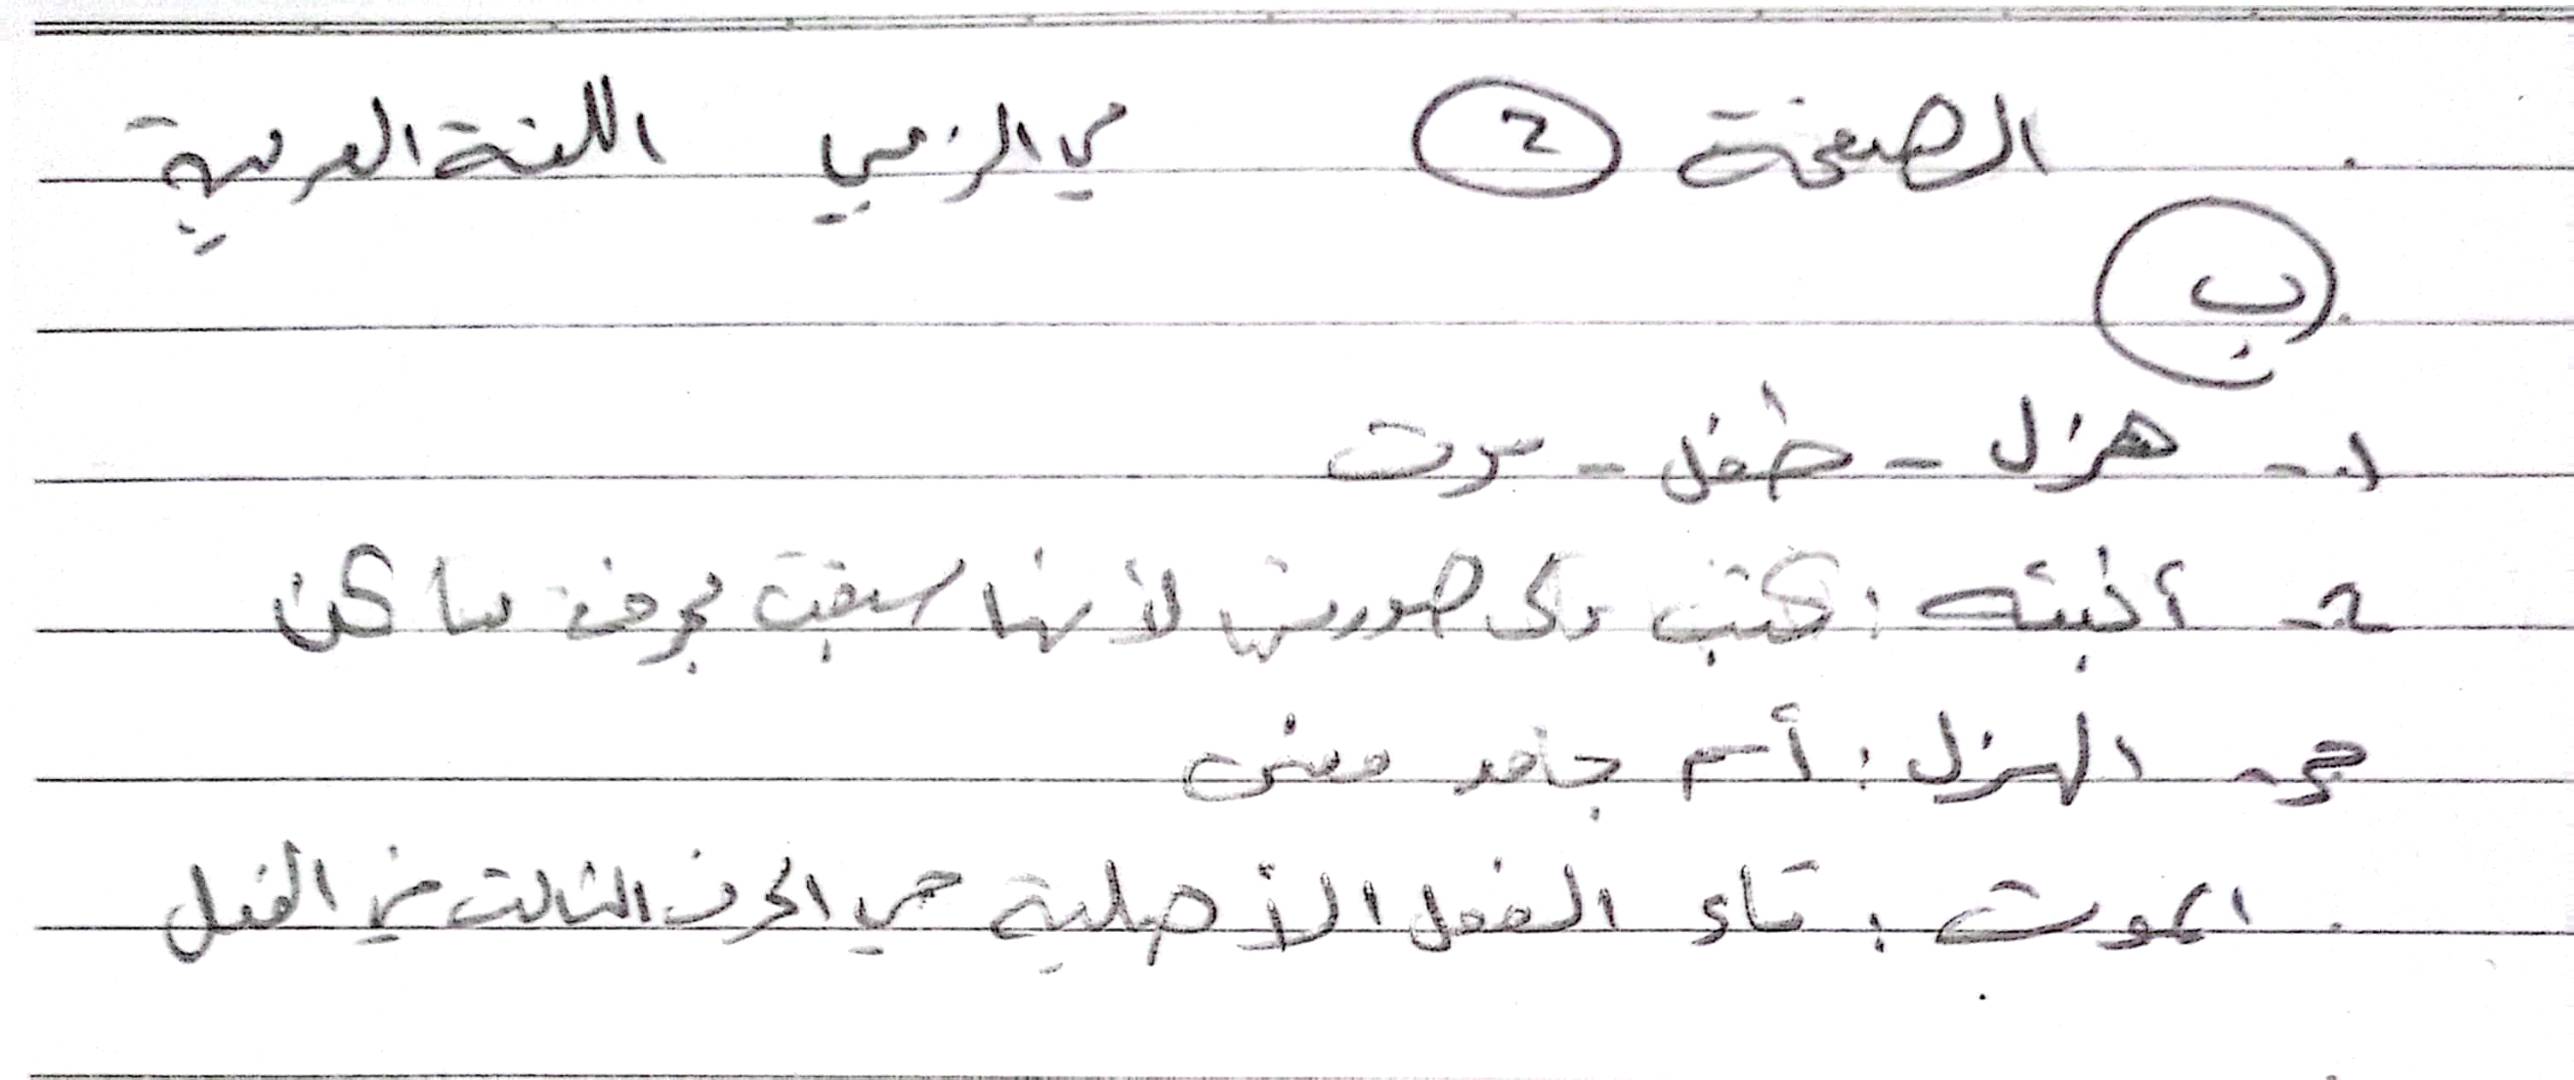 الصفحة 2 مي الزعبي اللغة العربية
ب
1- هزل - طفل - موت
2- أنبته : كتبت على صورتها لأنها سبقت بحرف ساكن
ج- الهزل : أسم جامد معنى
الموت : تاء الفعل الأصلية هي الحرف الثالث من الفعل